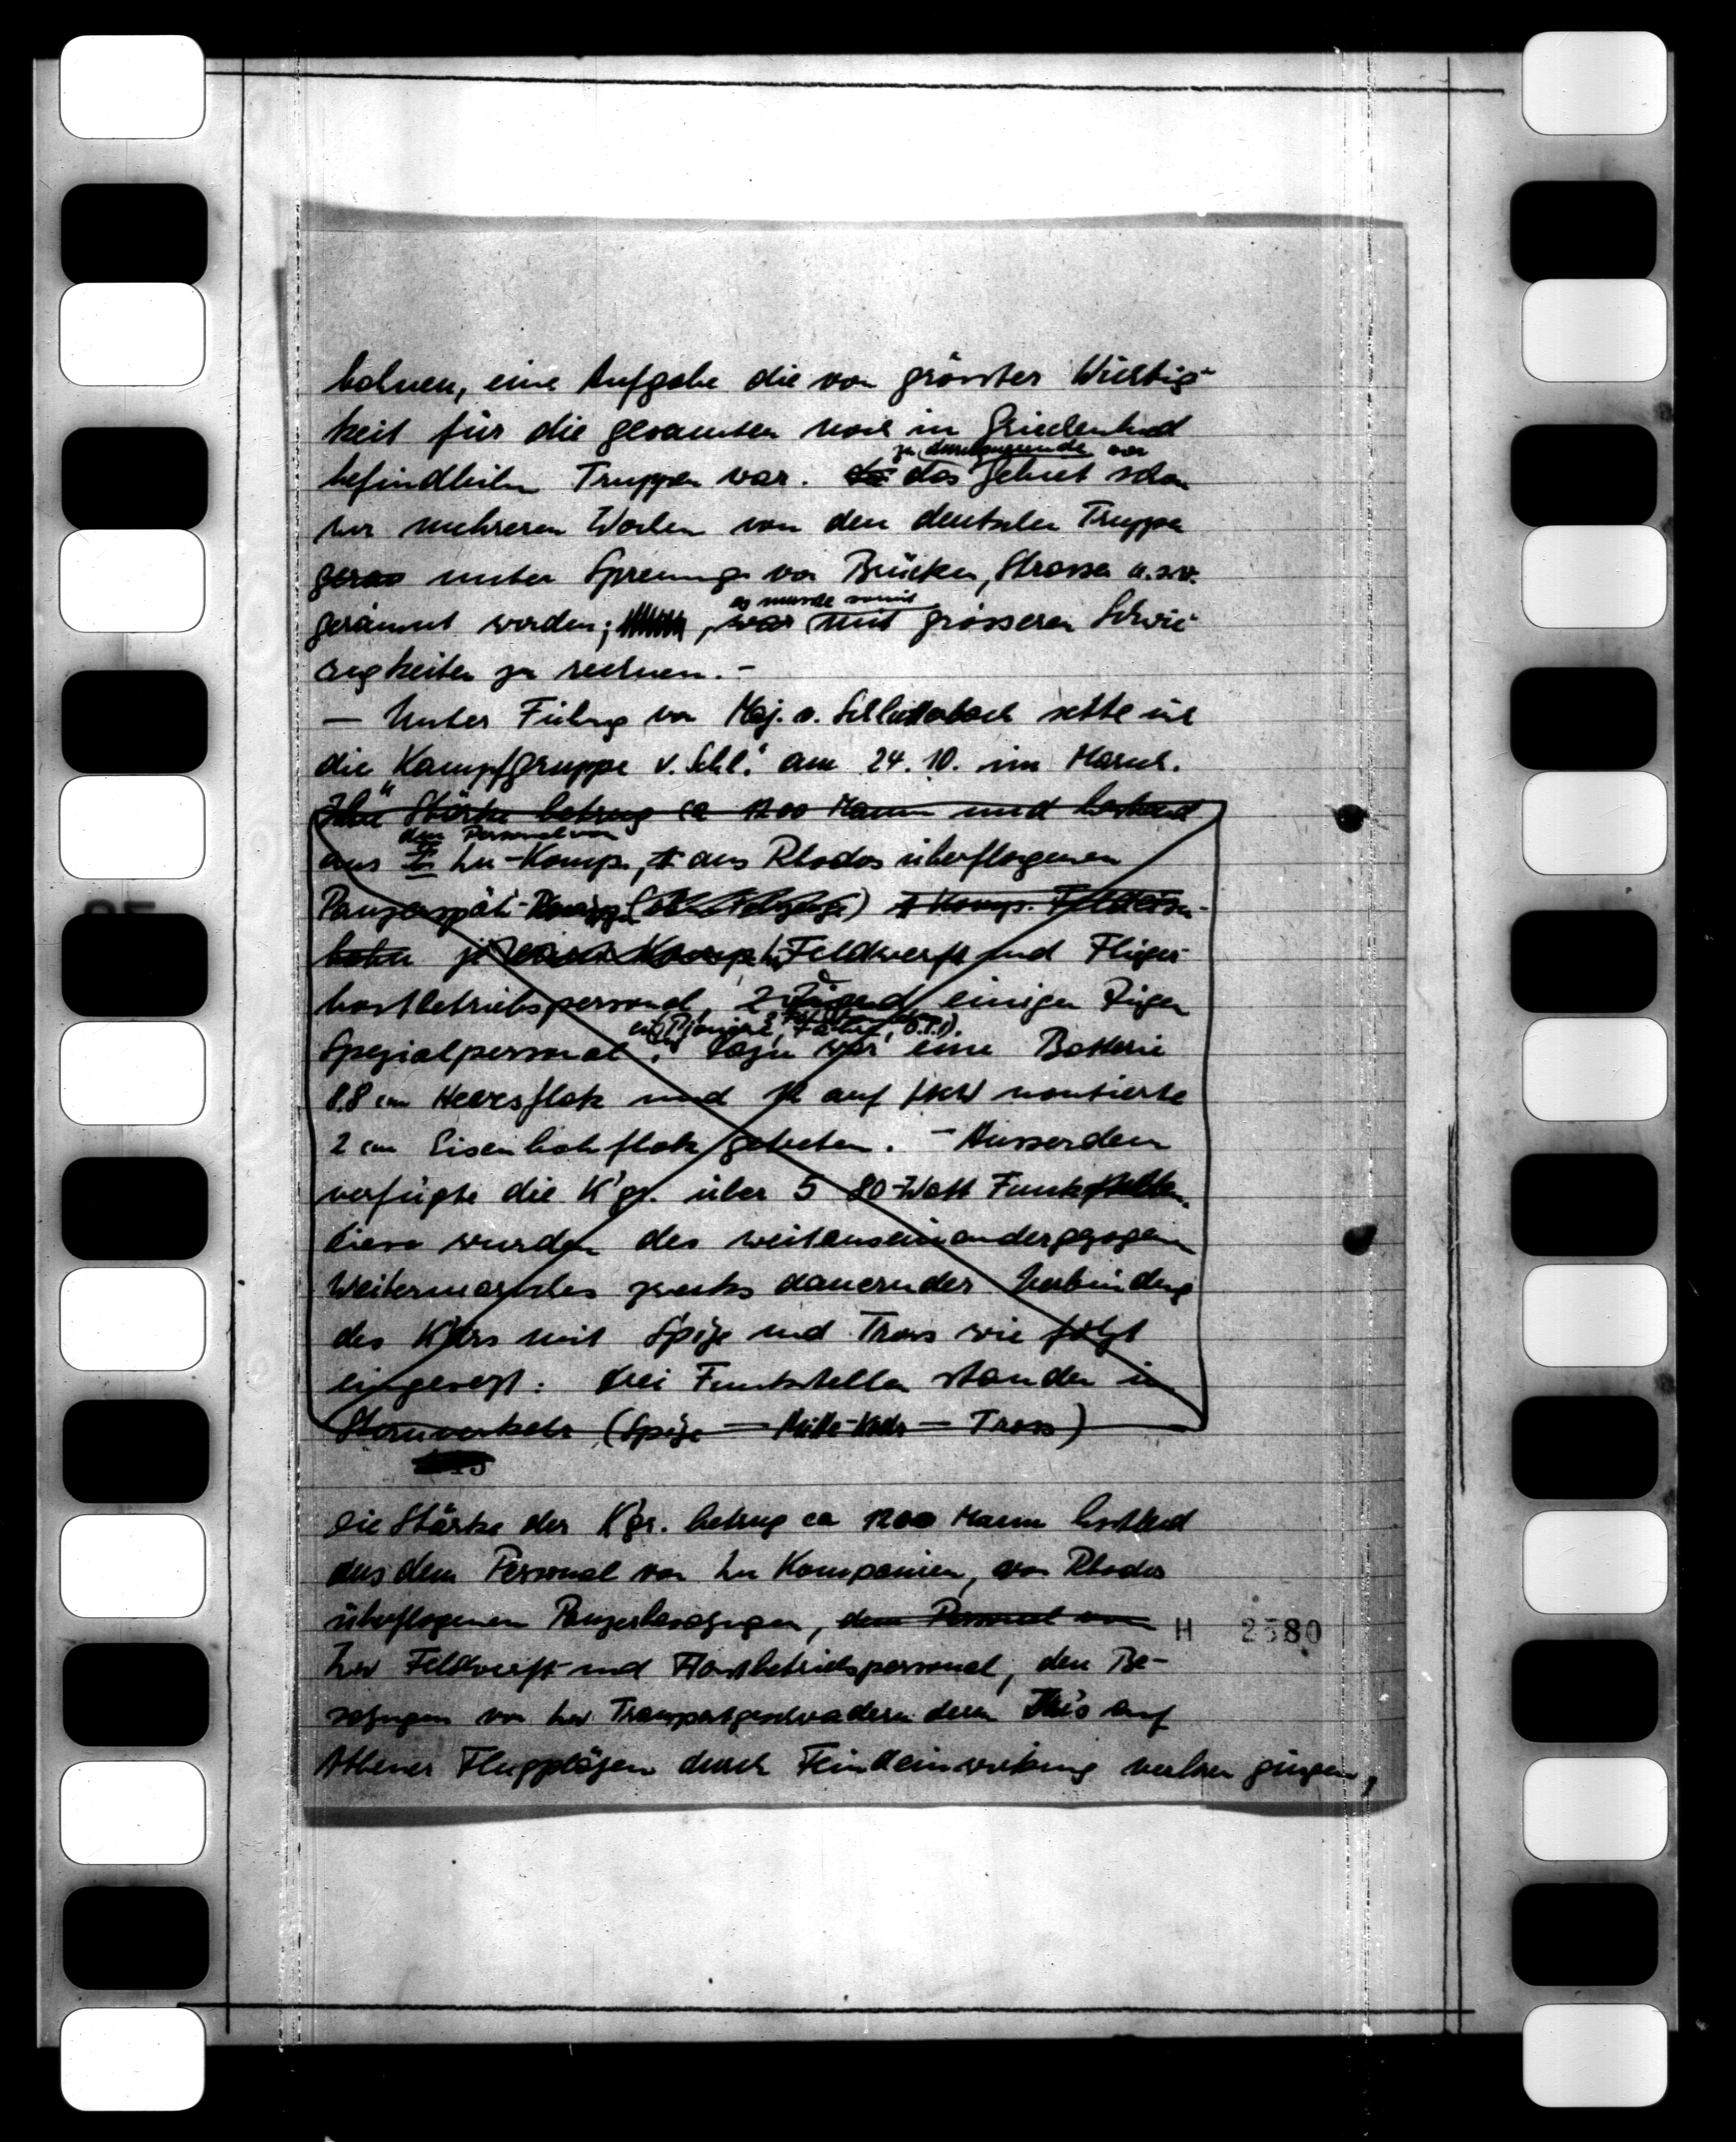 bahnen, eine Aufgabe die von grösster Wichtig-
keit für die gesamten noch in Griechenland
zu durchquerende war
befindlichen Truppen war. da das Gebiet schon
vor mehreren Wochen von den deutschen Truppen
unter Sprengung von Brücken, Strassen u.s.w.
es wurde somit
geräumt worden; , war mit grösseren Schwie-
rigkeiten zu rechnen. -
- Unter Führung von Maj. v. setzte sich
die "Kampfgruppe v. Schl." am 24. 10. in Marsch.
Ihre Stärke betrug ca 1200 Mann und bestand
dem Personal von
aus Ln-Komp., aus Rhodos überflogenen
Panzerspäh-
je Feldwerft und Flieger-
horstbetriebspersonal, einigen Zügen
Spezialpersonal. Dazu war eine Batterie
8.8 cm Heeresflak und auf LKW montierte
2 cm Eisenbahnflak getreten. - Ausserdem
verfügte die K'gr. über 5 80-Watt Funkstellen.
Diese wurden des weitauseinandergezogenen
Weitermarsches zwecks dauernder Verbindung
des K'drs mit Spitze und Tross wie folgt
eingesetzt: Drei Funkstellen standen in
Sternverkehr (Spitze - Mitte-Kdr - Tross)
Die Stärke der K'gr. betrug ca 1200 Mann bestehend
aus dem Personal von Ln Kompanien, von Rhodos
überflogenen Panzerbesatzungen, dem Personal von
Lw Feldwerft- und Horstbetriebspersonal, den Be-
satzungen von Lw Transportgeschwadern deren Ju's auf
Athener Flugplätzen durch Feindeinwirkung verloren gingen,
H 2580